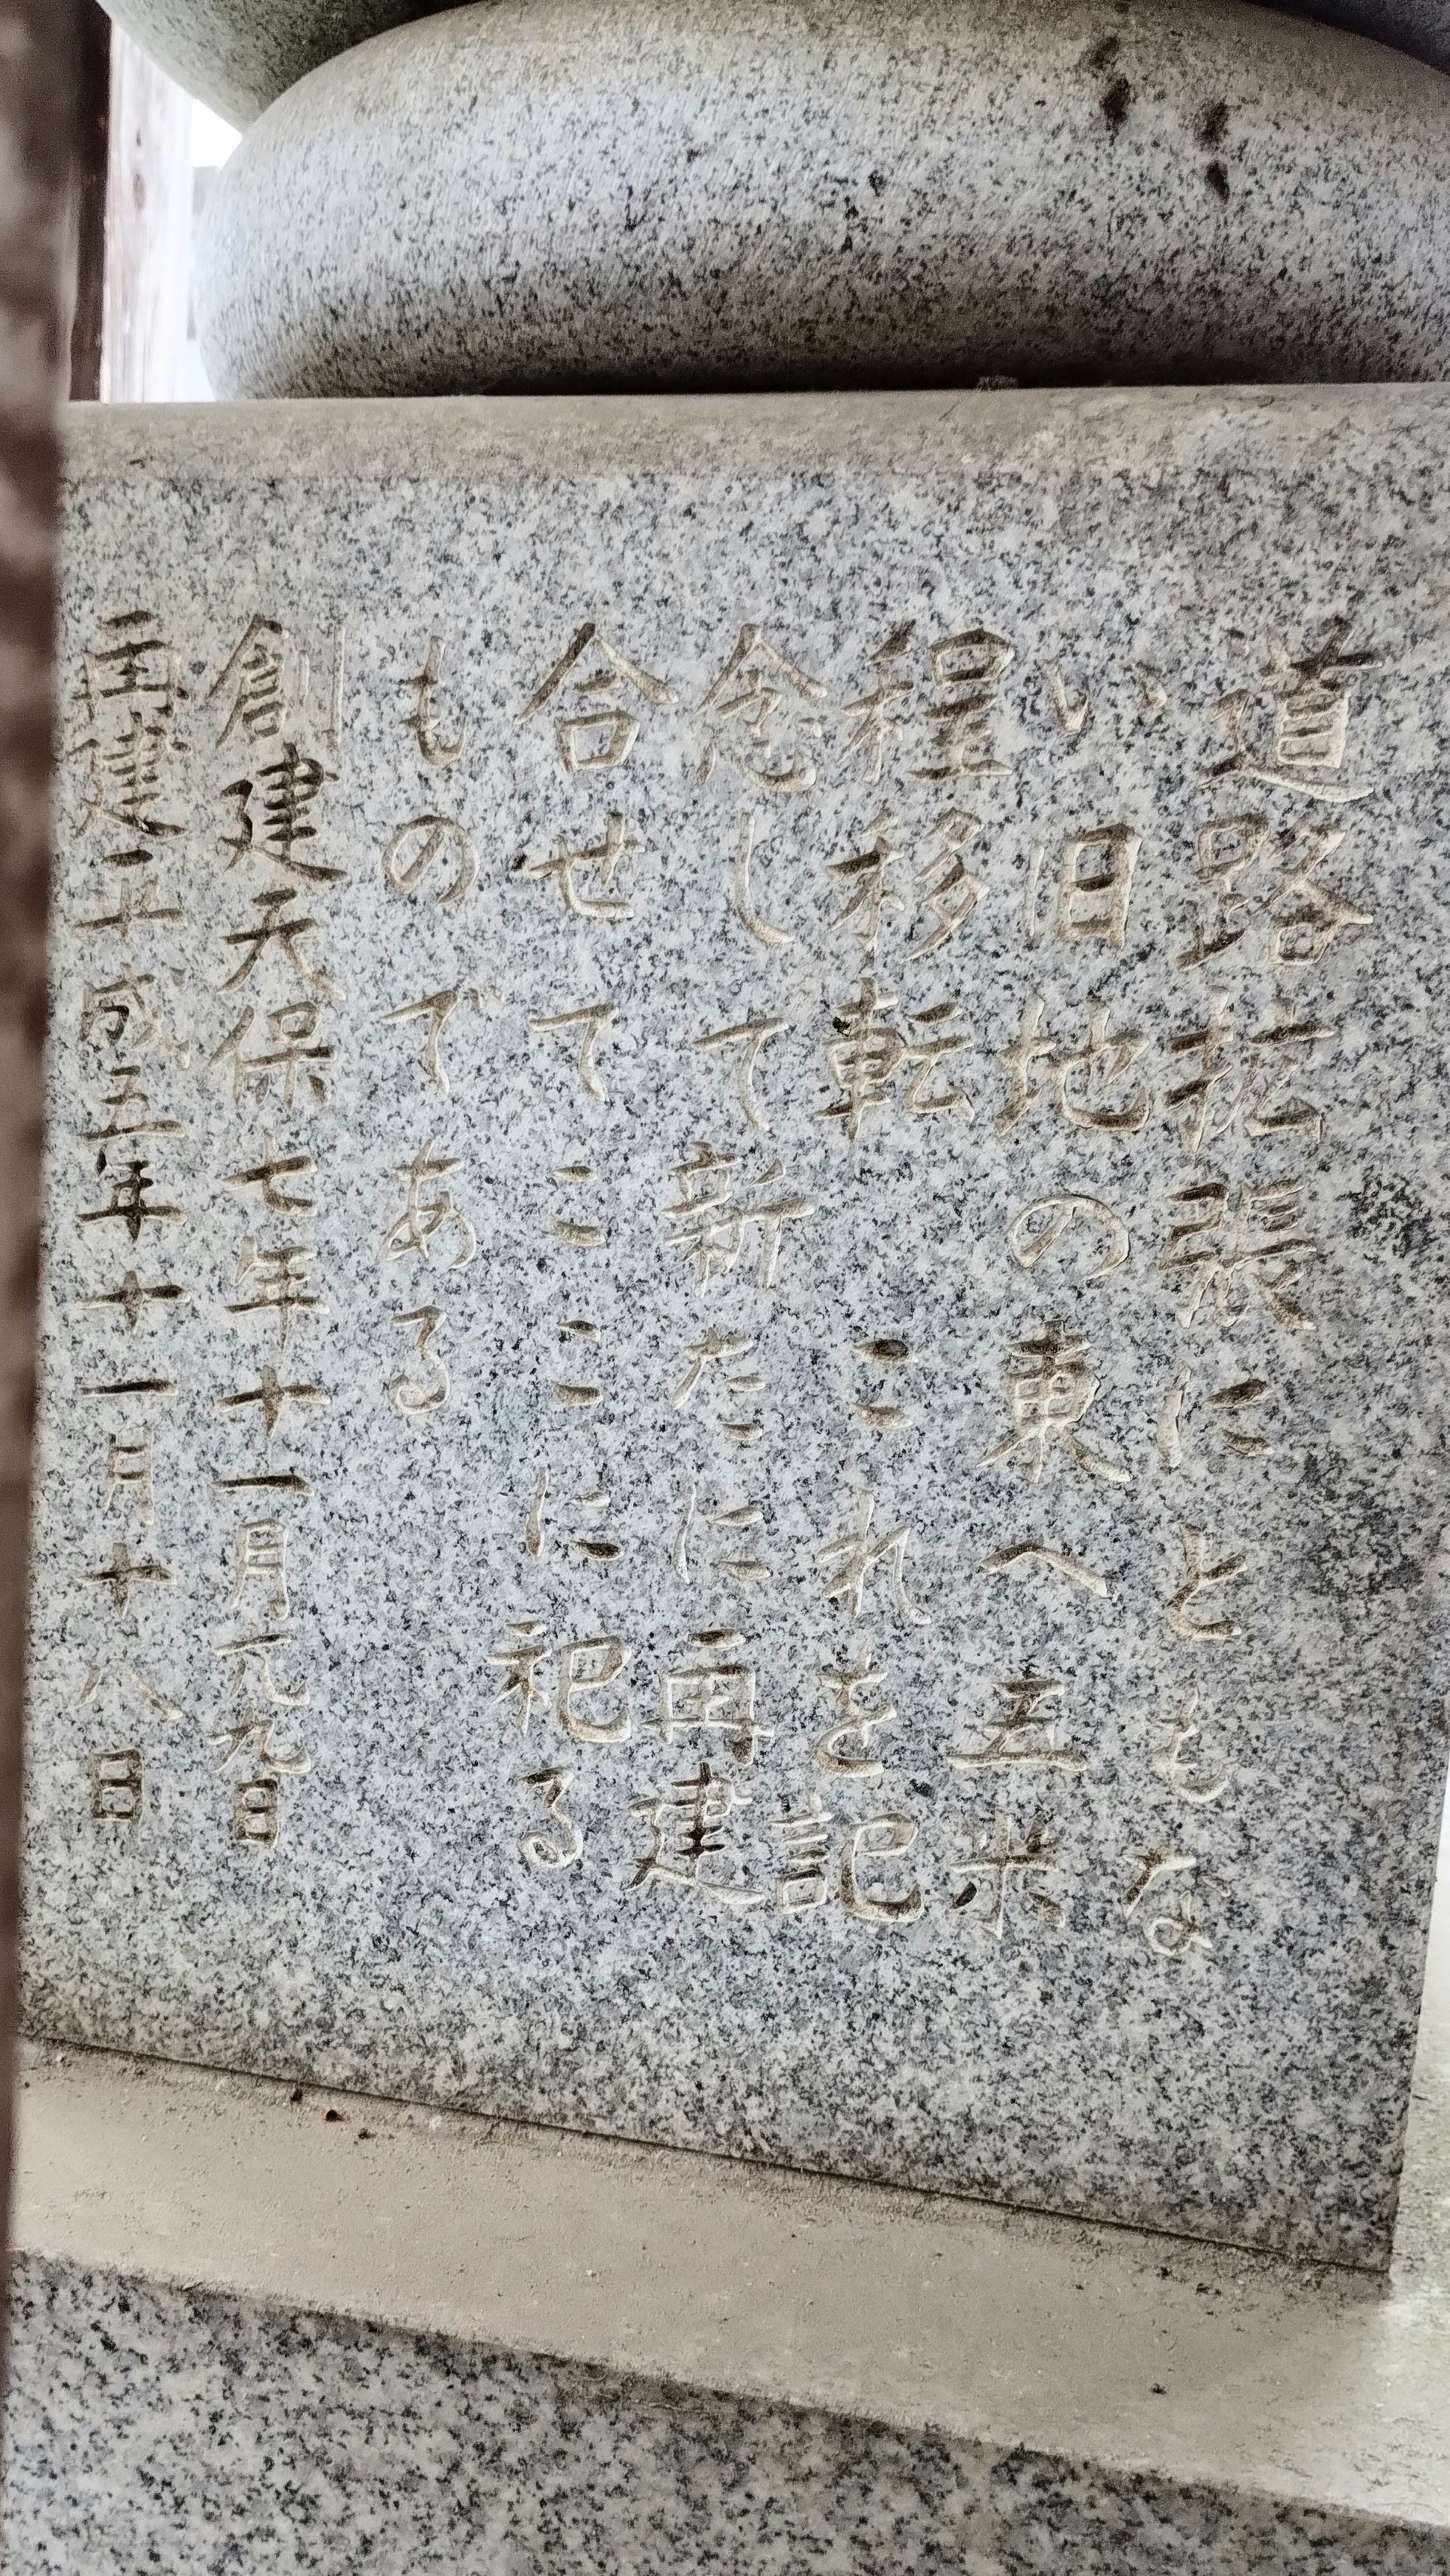 道路拡張にともな
い旧地の東へ五米
程移転 これを記
念して新たに再建
合せてここに祀る
ものである
創建天保七年十一月六九日
再建平成五年十一月十八日